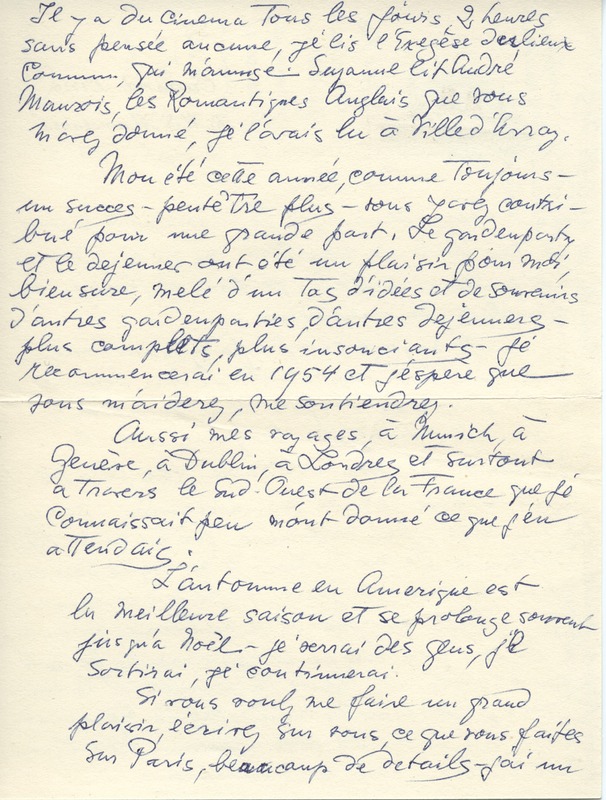 Il y a du cinema Tous les jours, 2 heures
sans pensée aucune, je lis l'Exegèse des lieux
Communs, qui m'amuse. Suzanne lit André
Maurois, les Romantiques Anglais que vous
m'avez donné, je l'avais lu à Ville d'Avray.
Mon été cette année, comme Toujours -
un succes - peutêTre plus - vous y avez contri-
bué pour une grande part. Le gardenparty
et le dejeuner ont été un plaisir pour moi,
bien sure, melé d'un Tas d'idées et de souvenirs
d'autres gardenparties, d'autres dejeuners -
plus complets, plus insouciants - je
recommencerai en 1954 et j'éspere que
vous m'aiderez, me soutiendrez.
Aussi mes voyages, à Munich, à
Genève, à Dublin, à Londres et surtout
a Travers le Sud-Ouest de la France que je
Connaissait peu m'ont donné ce que j'en
aTTendais.
L'automne en Amerique est
la meilleure saison et se prolonge souvent
jusqu'à Noël - je verrai des gens, je
Sortirai, je continuerai.
Si vous voulez me faire un grand
plaisir, écrivez sur vous, ce que vous faites
Sur Paris, beaucoup de details - j'ai un